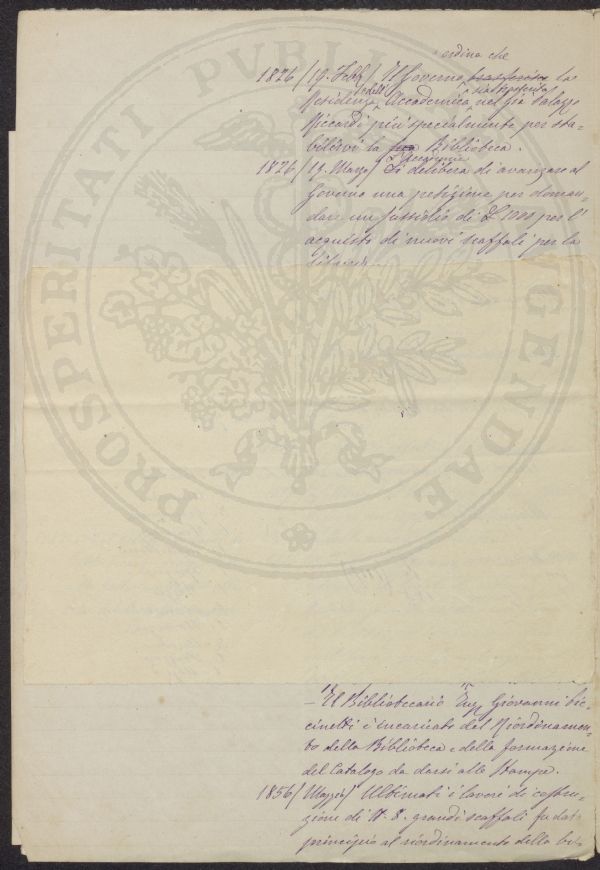 ordina che
1826 (19. Febb.) Il Governo trasferisce la sia ripristinata
Residenza Accademica nel già Palazzo
Riccardi più specialmente per sta-
bilirvi la sua Biblioteca.
l'Accademia
1826 (19. Marzo) Si delibera di avanzare al
Governo una petizione per doman-
dare un sussidio di L. 1000 per l'
acquisto di nuovi scaffali per la
– Il Bibliotecario Ing. Giovanni
è incaricato del Riordinamen-
to della Biblioteca e della formazione
del Catalogo da darsi alle Stampe.
1856 (Maggio) Ultimati i lavori di costru-
zione di N. 8. grandi scaffali fu dato
principio al riordinamento della bib
PROSPERITATI PUBLI GENDAE